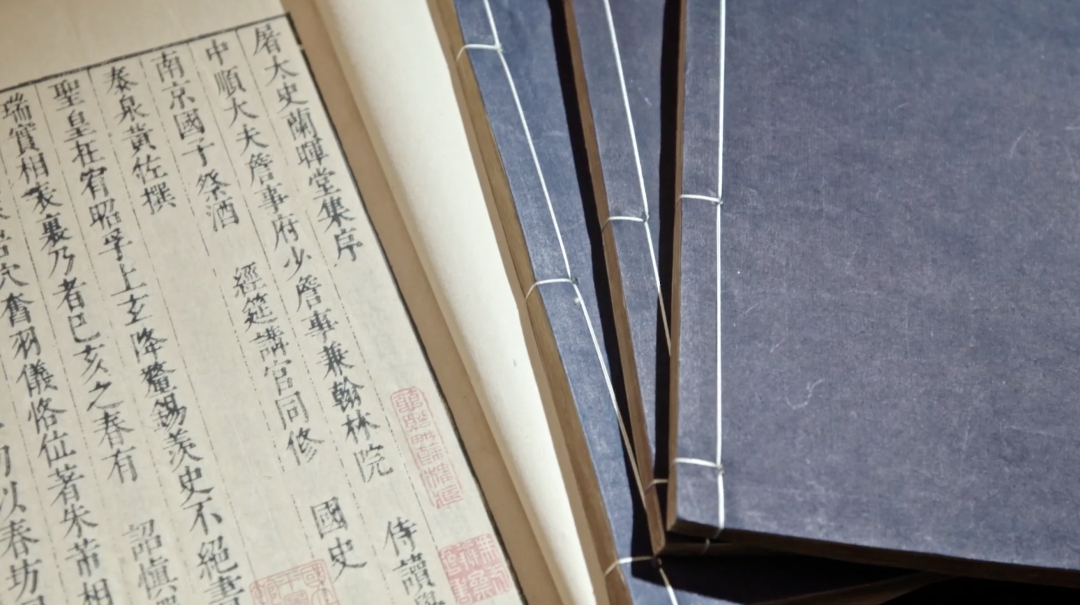 屠太史蘭暉堂集序
中順大夫詹事府少詹事兼翰林院 侍讀學
南京國子祭酒 經筵講官同修 國史
泰泉黃佐撰
聖皇在宥昭孚上玄降釐錫羡史不絕書
瑞實相表裏乃者已亥之春有 詔慎
穴奮羽儀恪位著朱芾相
以春坊